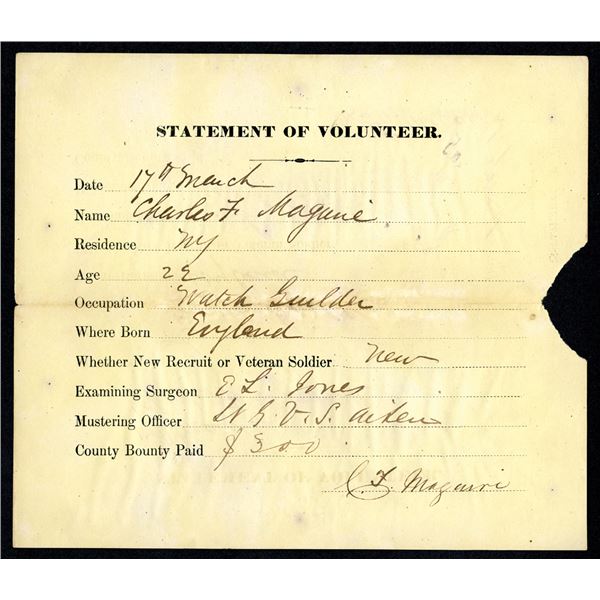 STATEMENT OF VOLUNTEER.
Date 17th March
Name Charles F Maguire
Residence NY
Age 22
Occupation Watch Guilder
Where Born England
Whether New Recruit or Veteran Soldier new
Examining Surgeon E L. Jones
Mustering Officer Lt G. V. S. Aiken
County Bounty Paid $300
C. F. Maguire